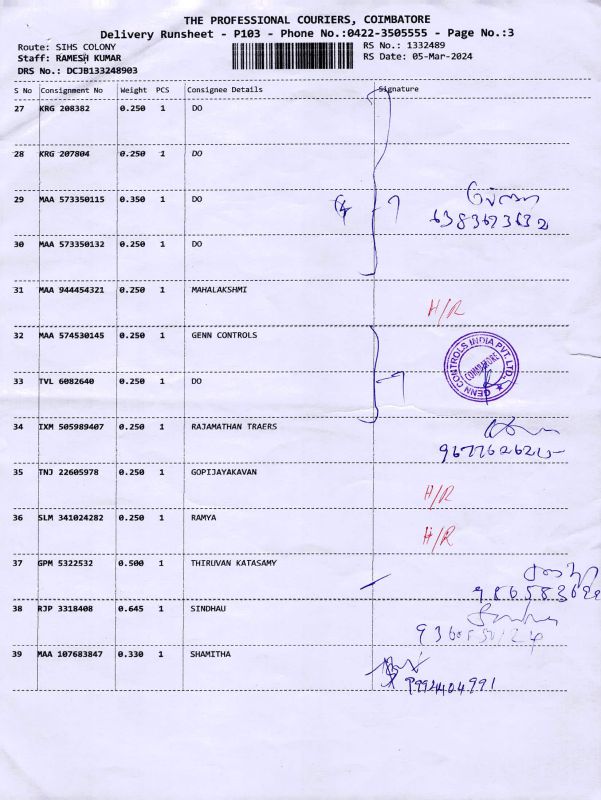 THE PROFESSIONAL COURIERS, COIMBATORE
Delivery Runsheet - P103 - Phone No.:0422-3505555 - Page No.:3
Route: SIHS COLONY
RS No.: 1332489
Staff: RAMESH KUMAR
RS Date: 05-Mar-2024
DRS No.: DCJB133248903
S No Consignment No Weight PCS Consignee Details Signature
27 KRG 208382 0.250 1 DO
28 KRG 207804 0.250 1 DO
29 MAA 573350115 0.350 1 DO
6383673632
30 MAA 573350132 0.250 1 DO
31 MAA 944454321 0.250 1 MAHALAKSHMI
H/R
32 MAA 574530145 0.250 1 GENN CONTROLS
GENN CONTROLS INDIA PVT. LTD.
COIMBATORE
33 TVL 6082640 0.250 1 DO
34 IXM 505989407 0.250 1 RAJAMATHAN TRAERS
35 TNJ 22605978 0.250 1 GOPIJAYAKAVAN
H/R
36 SLM 341024282 0.250 1 RAMYA
H/R
37 GPM 5322532 0.500 1 THIRUVAN KATASAMY
38 RJP 3318408 0.645 1 SINDHAU
39 MAA 107683847 0.330 1 SHAMITHA
9994404991